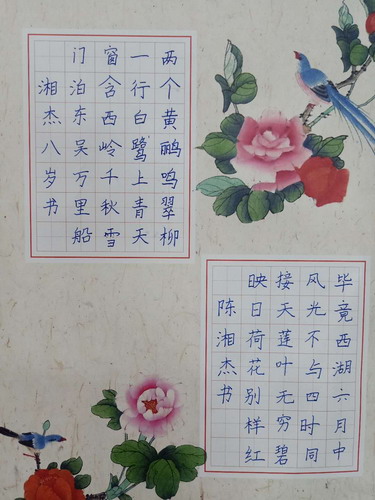 两个黄鹂鸣翠柳
一行白鹭上青天
窗含西岭千秋雪
门泊东吴万里船
湘杰八岁书
毕竟西湖六月中
风光不与四时同
接天莲叶无穷碧
映日荷花别样红
陈湘杰书